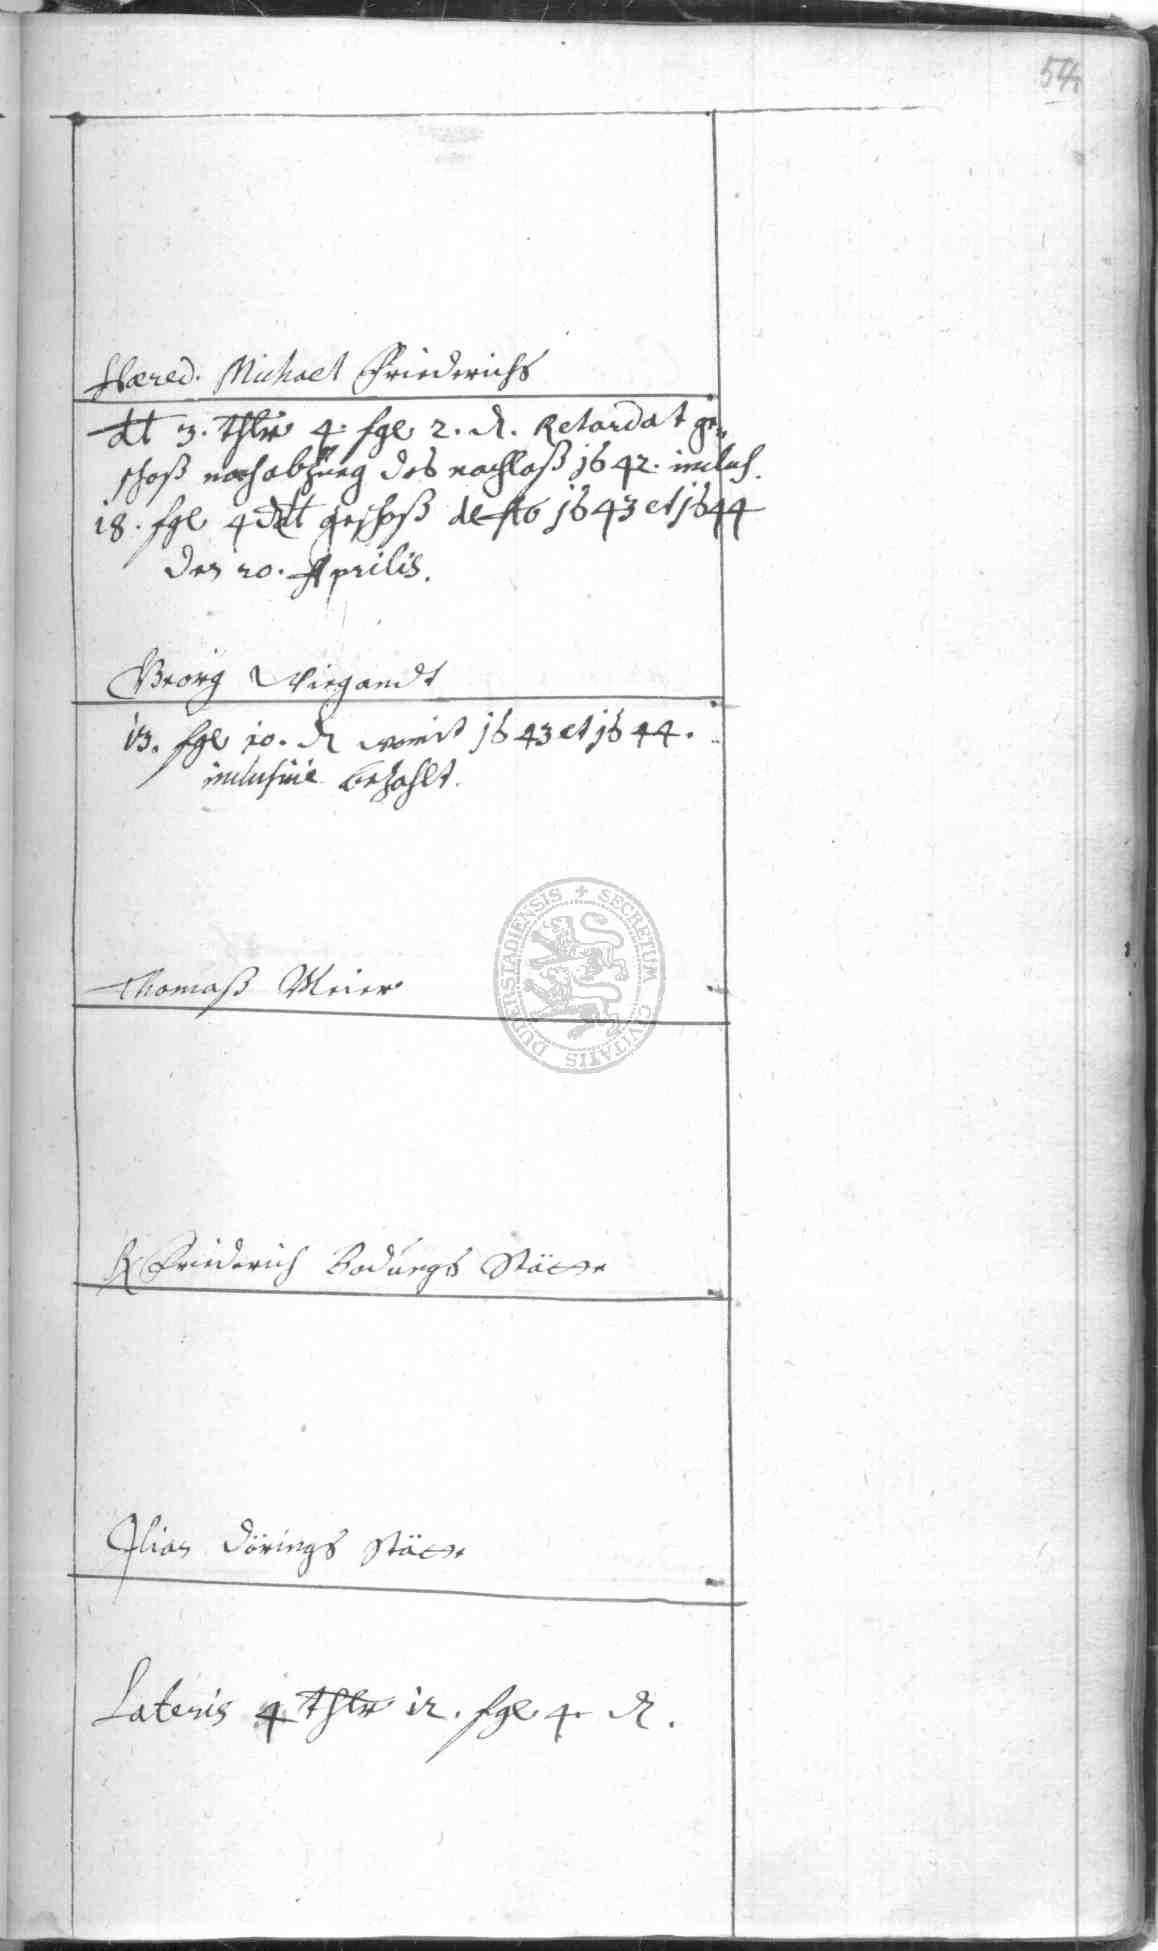 54.
Hæred. Michael Friederichs
dt 3. thlr 4. sgl 2. d. Retardat ge-
schoß nach abzueg des nachlaß 1642. inclus.
18. sgl 4 d dt geschoß de Ao 1643 et 1644
den 20. Aprilis.
Georg Wiegandt
13. sgl 10. d womit 1643 et 1644.
inclusiue bezahlt.
Thomaß Meier
Friederich Bodungs Stätte
Ilian Dörings Stätte
Lateris 4 thlr 12. sgl 4. d.
SECRETUM CIVITATIS DUDERSTADIENSIS